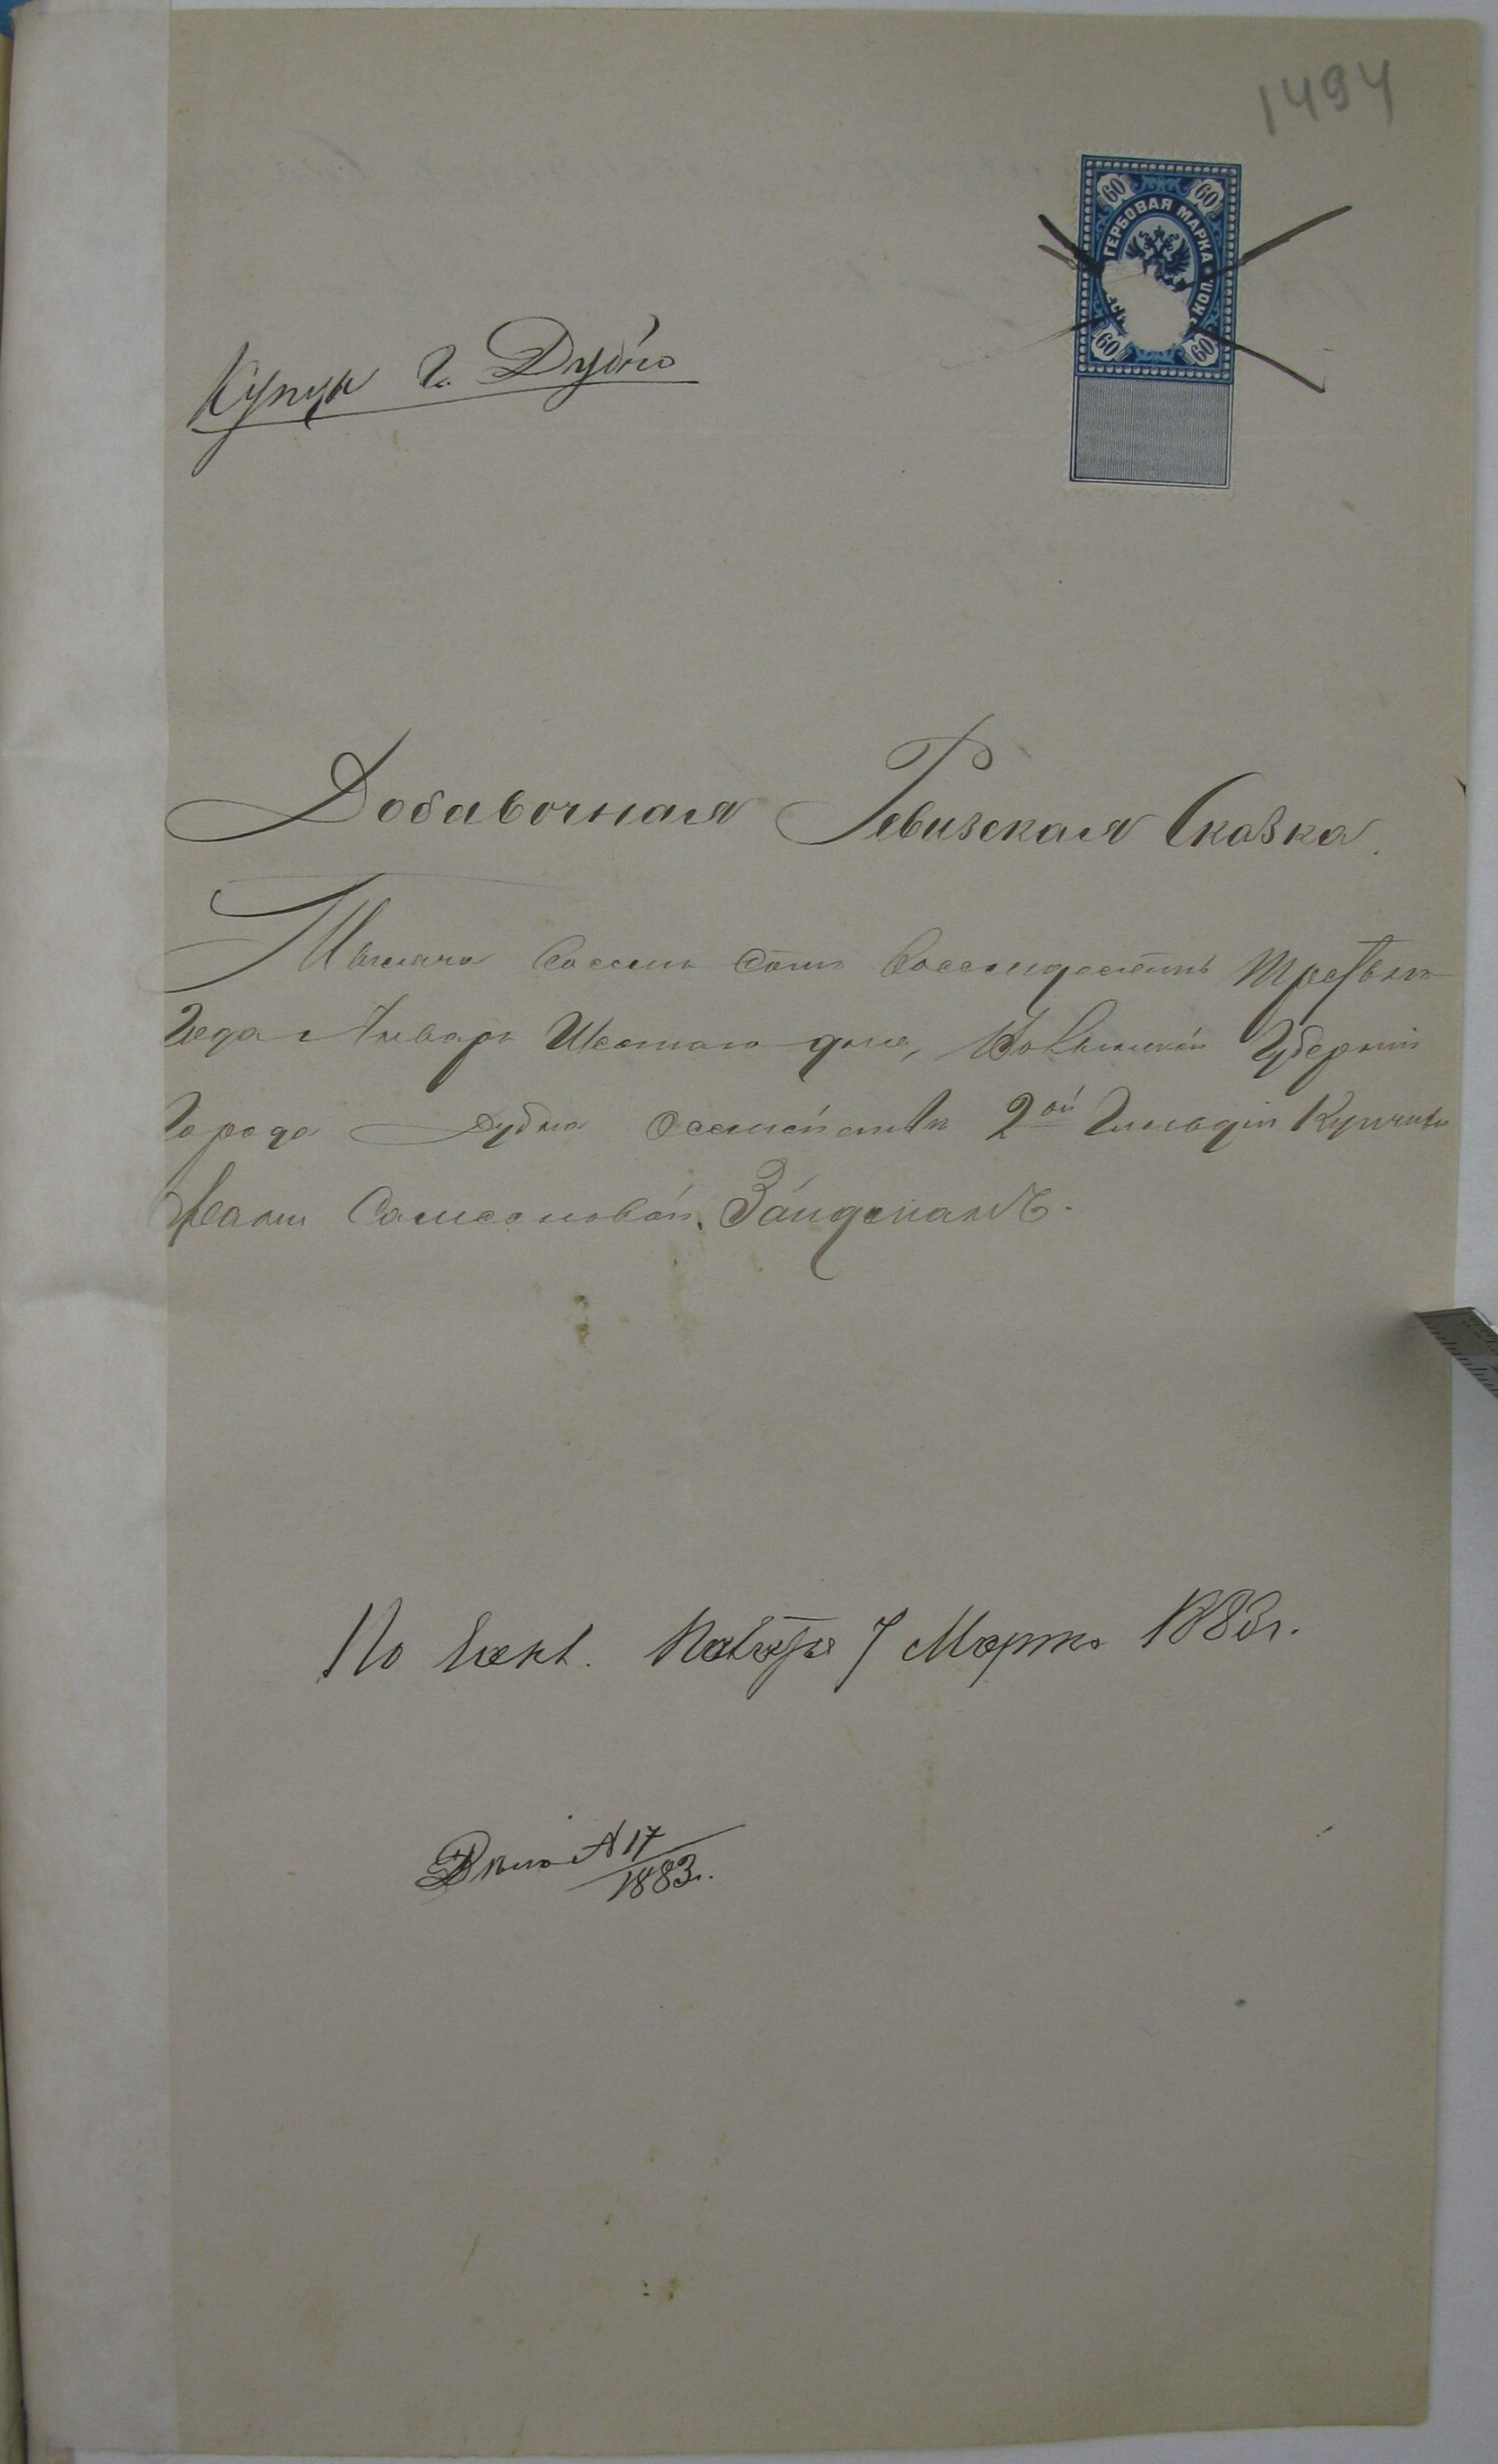 1494
60 60
ГЕРБОВАЯ МАРКА
КОП.
60 60
Купцы г. Дубно
Добавочная Ревизская Сказка.
Тысяча восемь сотъ восемьдесятъ третьяго
Года Января Шестаго дня, Волынской Губерніи
Города Дубна о семействѣ 2ой Гильдіи Купчихи
Самсоновой Зайдеманъ.
По 7 Марта 1883 г.
Дѣло № 17
1883.